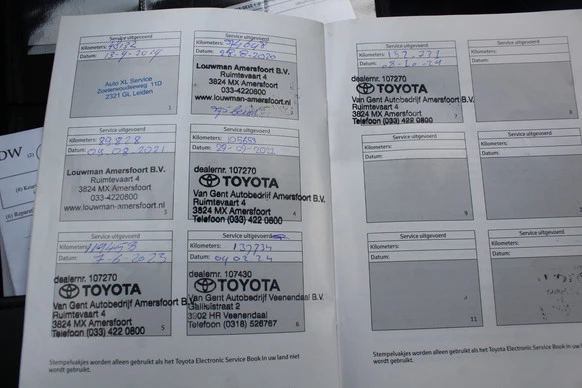 Service uitgevoerd
Kilometers:
Datum: 18-9-2019
Auto XL Service
Zoeterwoudseweg 11D
2321 GL Leiden
1
Service uitgevoerd
Kilometers:
Datum: 2020
Louwman Amersfoort B.V.
Ruimtevaart 4
3824 MX Amersfoort
033-4220800
www.louwman-amersfoort.nl
Service uitgevoerd
Kilometers: 89.828
Datum: 04.08.2021
Louwman Amersfoort B.V.
Ruimtevaart 4
3824 MX Amersfoort
033-4220800
www.louwman-amersfoort.nl
3
Service uitgevoerd
Kilometers: 105653
Datum: 29-09-2022
dealernr. 107270
TOYOTA
Van Gent Autobedrijf Amersfoort B.V.
Ruimtevaart 4
3824 MX Amersfoort
Telefoon (033) 422 0800
4
Service uitgevoerd
Kilometers:
Datum: 7-6-2023
dealernr. 107270
TOYOTA
Van Gent Autobedrijf Amersfoort B.V.
Ruimtevaart 4
3824 MX Amersfoort
Telefoon (033) 422 0800
5
Service uitgevoerd
Kilometers: 137734
Datum: 04 02 24
dealernr. 107430
TOYOTA
Van Gent Autobedrijf Veenendaal B.V.
Galileistraat 2
3902 HR Veenendaal
Telefoon (0318) 526767
6
Stempeluskjes worden alleen gebruikt als het Toyota Electronic Service Book in uw land niet
wordt gebruikt.
Service uitgevoerd
Kilometers:
Datum:
dealernr. 107270
TOYOTA
Van Gent Autobedrijf Amersfoort B.V.
Ruimtevaart 4
3824 MX Amersfoort
Telefoon (033) 422 0800
7
Service uitgevoerd
Kilometers:
Datum:
Service uitgevoerd
Kilometers:
Datum:
9
Service uitgevoerd
Kilometers:
Datum:
Service uitgevoerd
Kilometers:
Datum:
11
Service uitgevoerd
Kilometers:
Datum:
Stempeluskjes worden alleen gebruikt als het Toyota Electronic Service Book in uw la
wordt gebruikt.